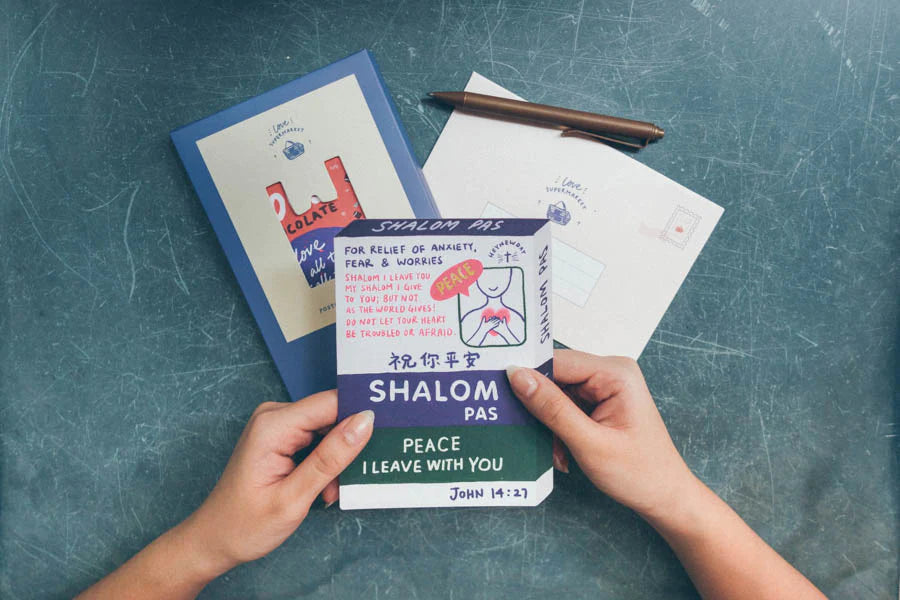 love
SUPERMARKET
COLATE
love
all t
love
SUPERMARKET
SHALOM PAS
FOR RELIEF OF ANXIETY,
FEAR & WORRIES
SHALOM I LEAVE YOU
MY SHALOM I GIVE
TO YOU; BUT NOT
AS THE WORLD GIVES!
DO NOT LET YOUR HEART
BE TROUBLED OR AFRAID.
PEACE
SHALOM PAS
祝你平安
SHALOM
PAS
PEACE
I LEAVE WITH YOU
JOHN 14:27